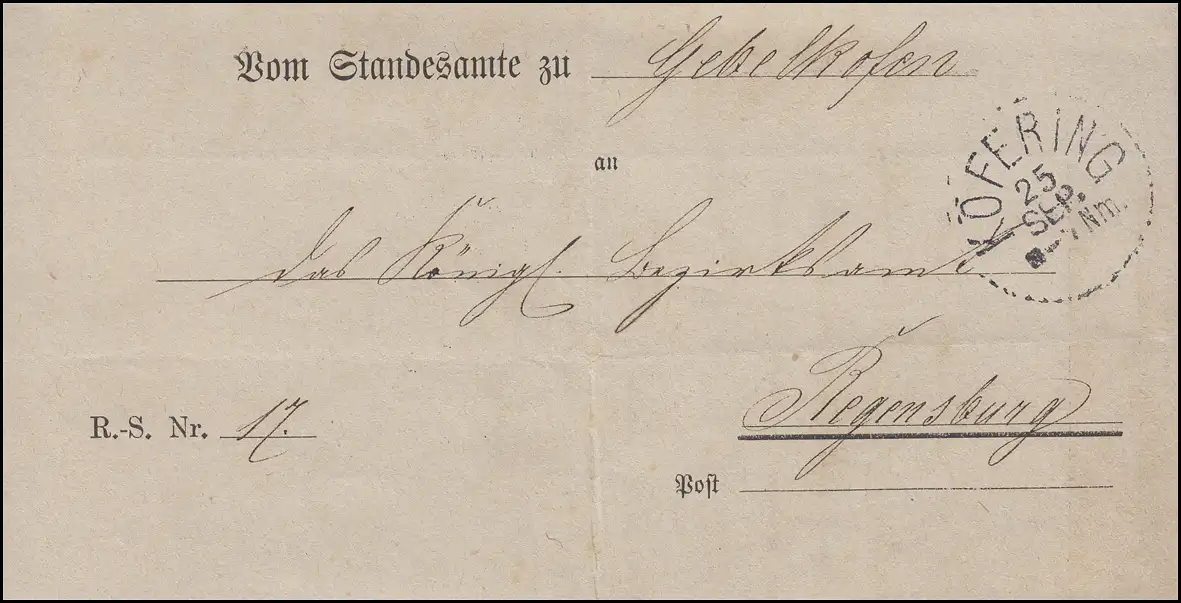 Vom Standesamte zu Gebelkofen
KÖFERING
25
SEP.
Nm.
an
das Königl. Bezirksamt
Regensburg
R.-S. Nr. 17.
Post